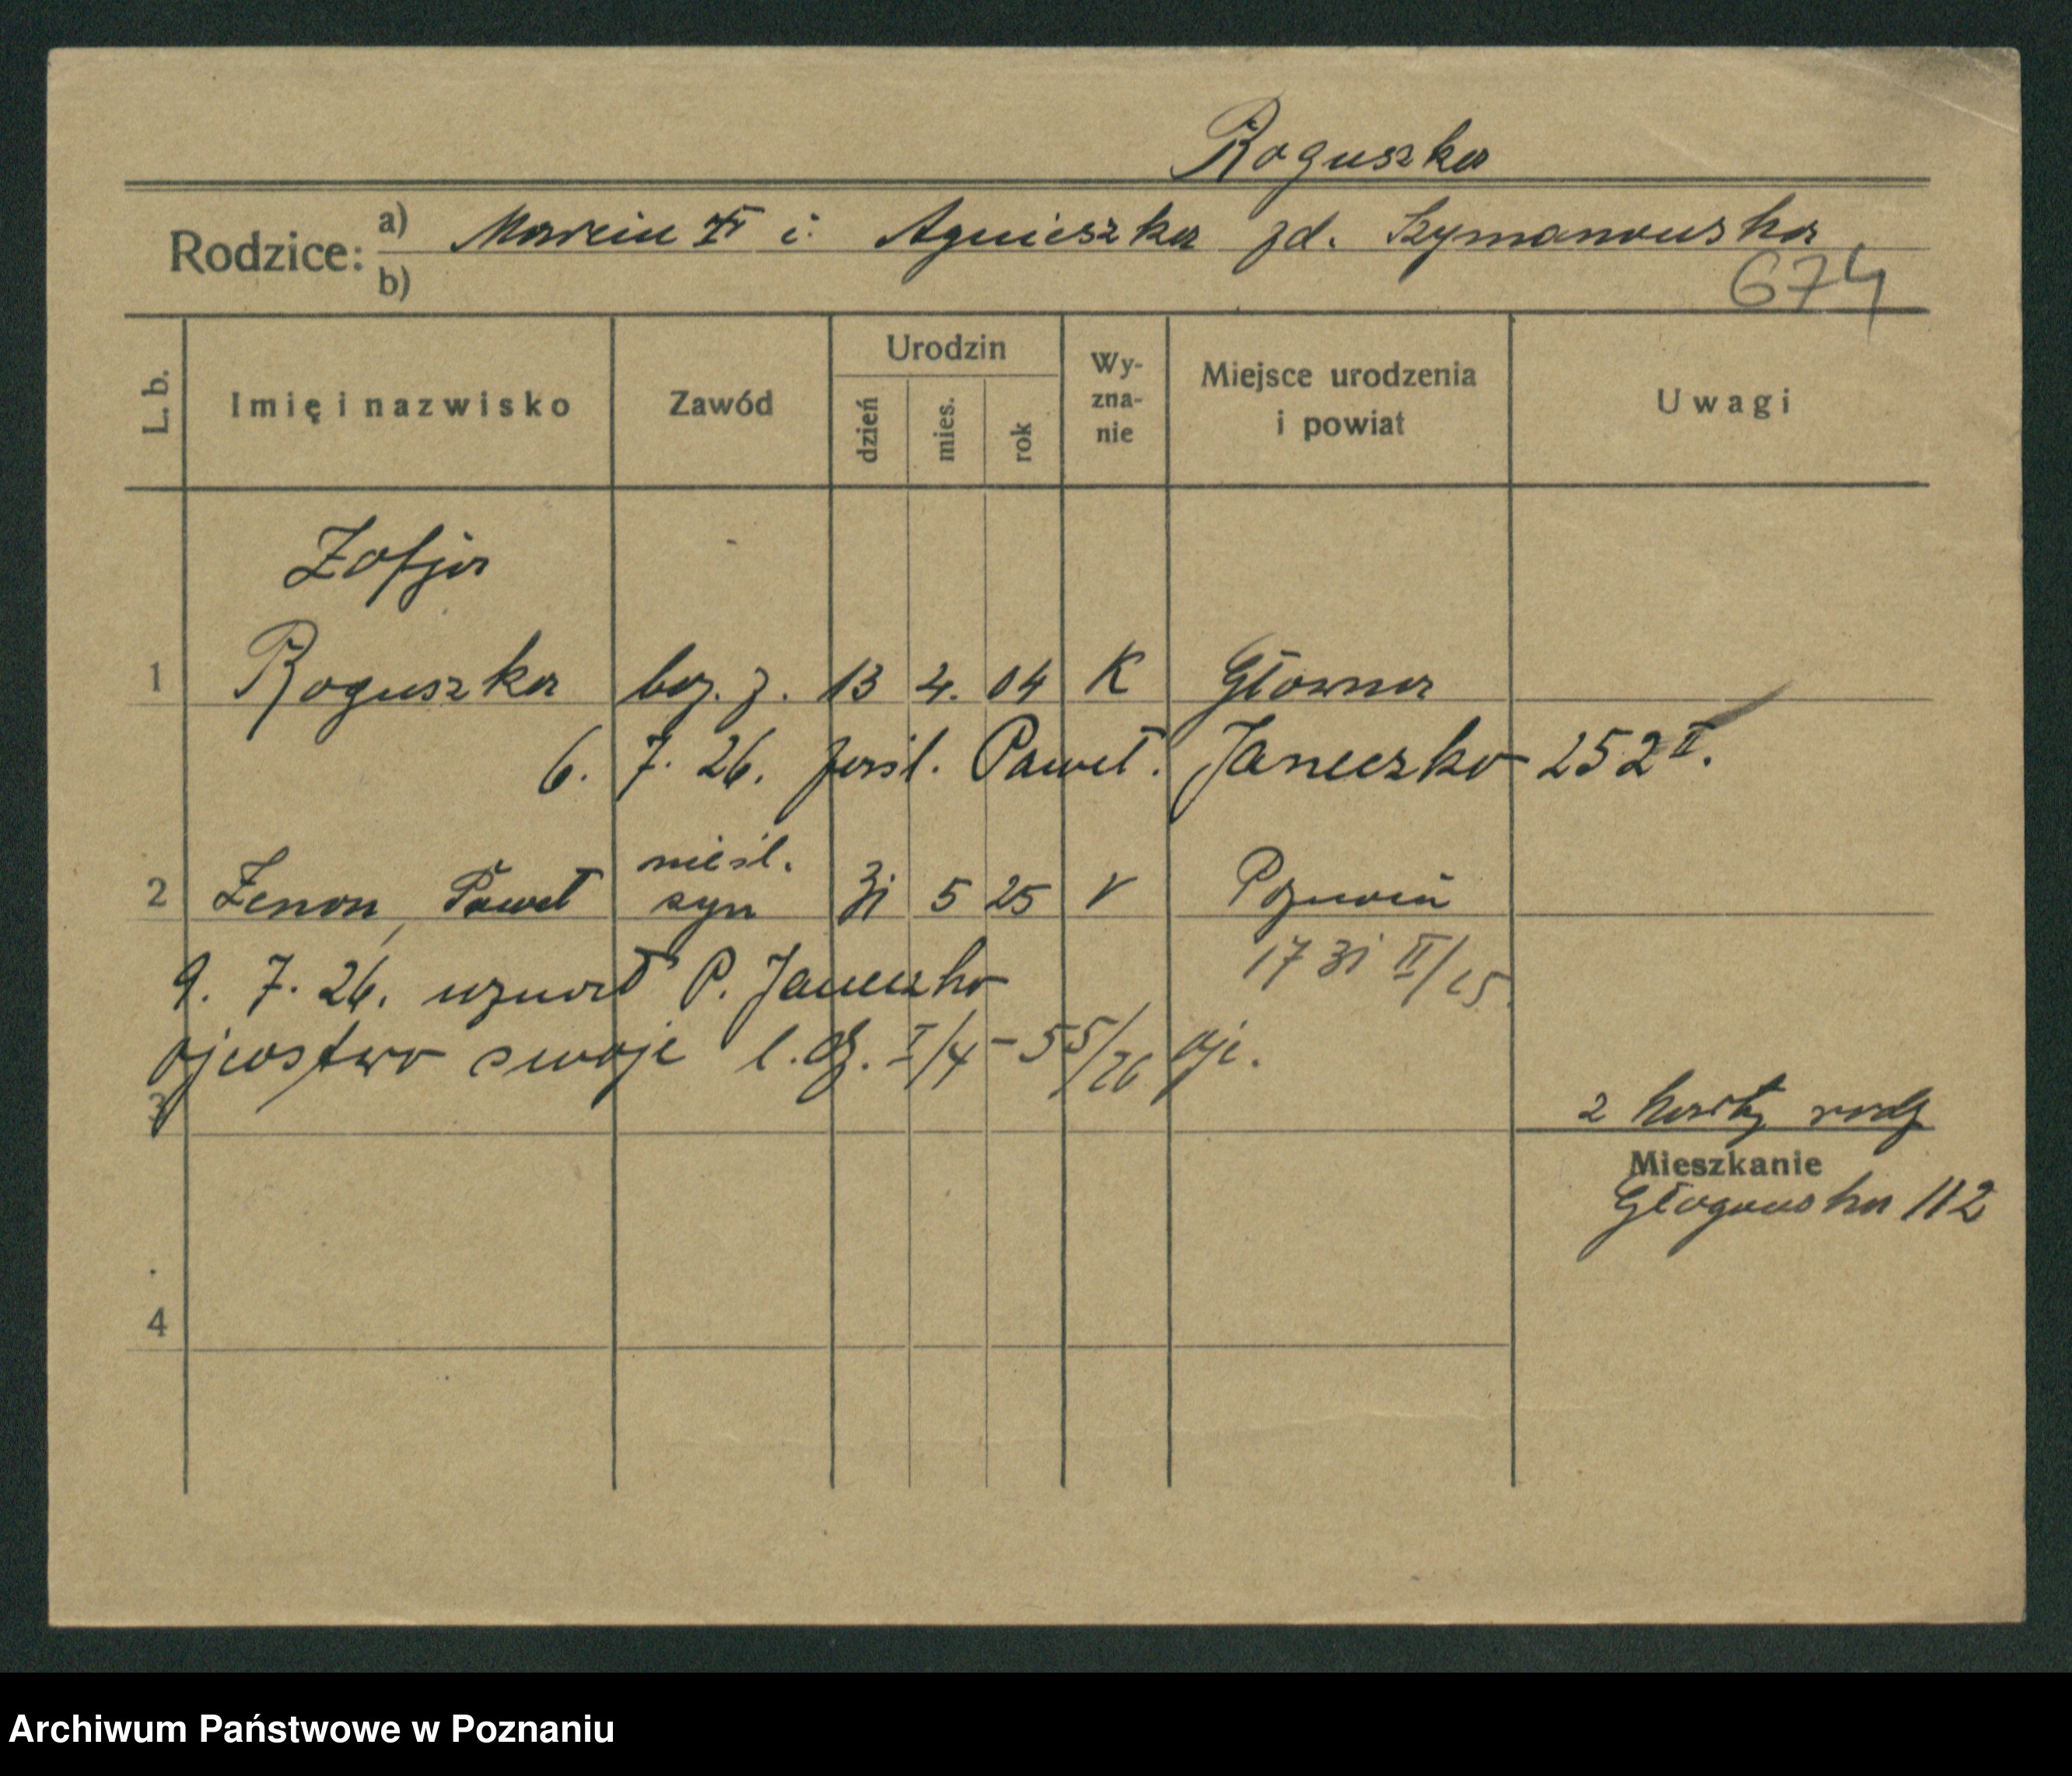 Roguszka
Rodzice: a) Marcin i Agnieszka zd. Szymanowska
b)
674
L. b. Imię i nazwisko Zawód Urodzin dzień mies. rok Wy-zna-nie Miejsce urodzenia i powiat Uwagi
Zofja -
1 Roguszka bez. z. 13 4. 04 K Główna
6. 7. 26. pośl. Paweł Janeczko 252 II.
nieśl.
2 Zenon, Paweł syn 31 5 25 V Poznań
1731 II/25.
9. 7. 26. uznał P. Janeczko
ojcostwo swoje l. dz. I/4 - 55/26
3
2 karty rodz
Mieszkanie
Głogowska 112
4
Archiwum Państwowe w Poznaniu